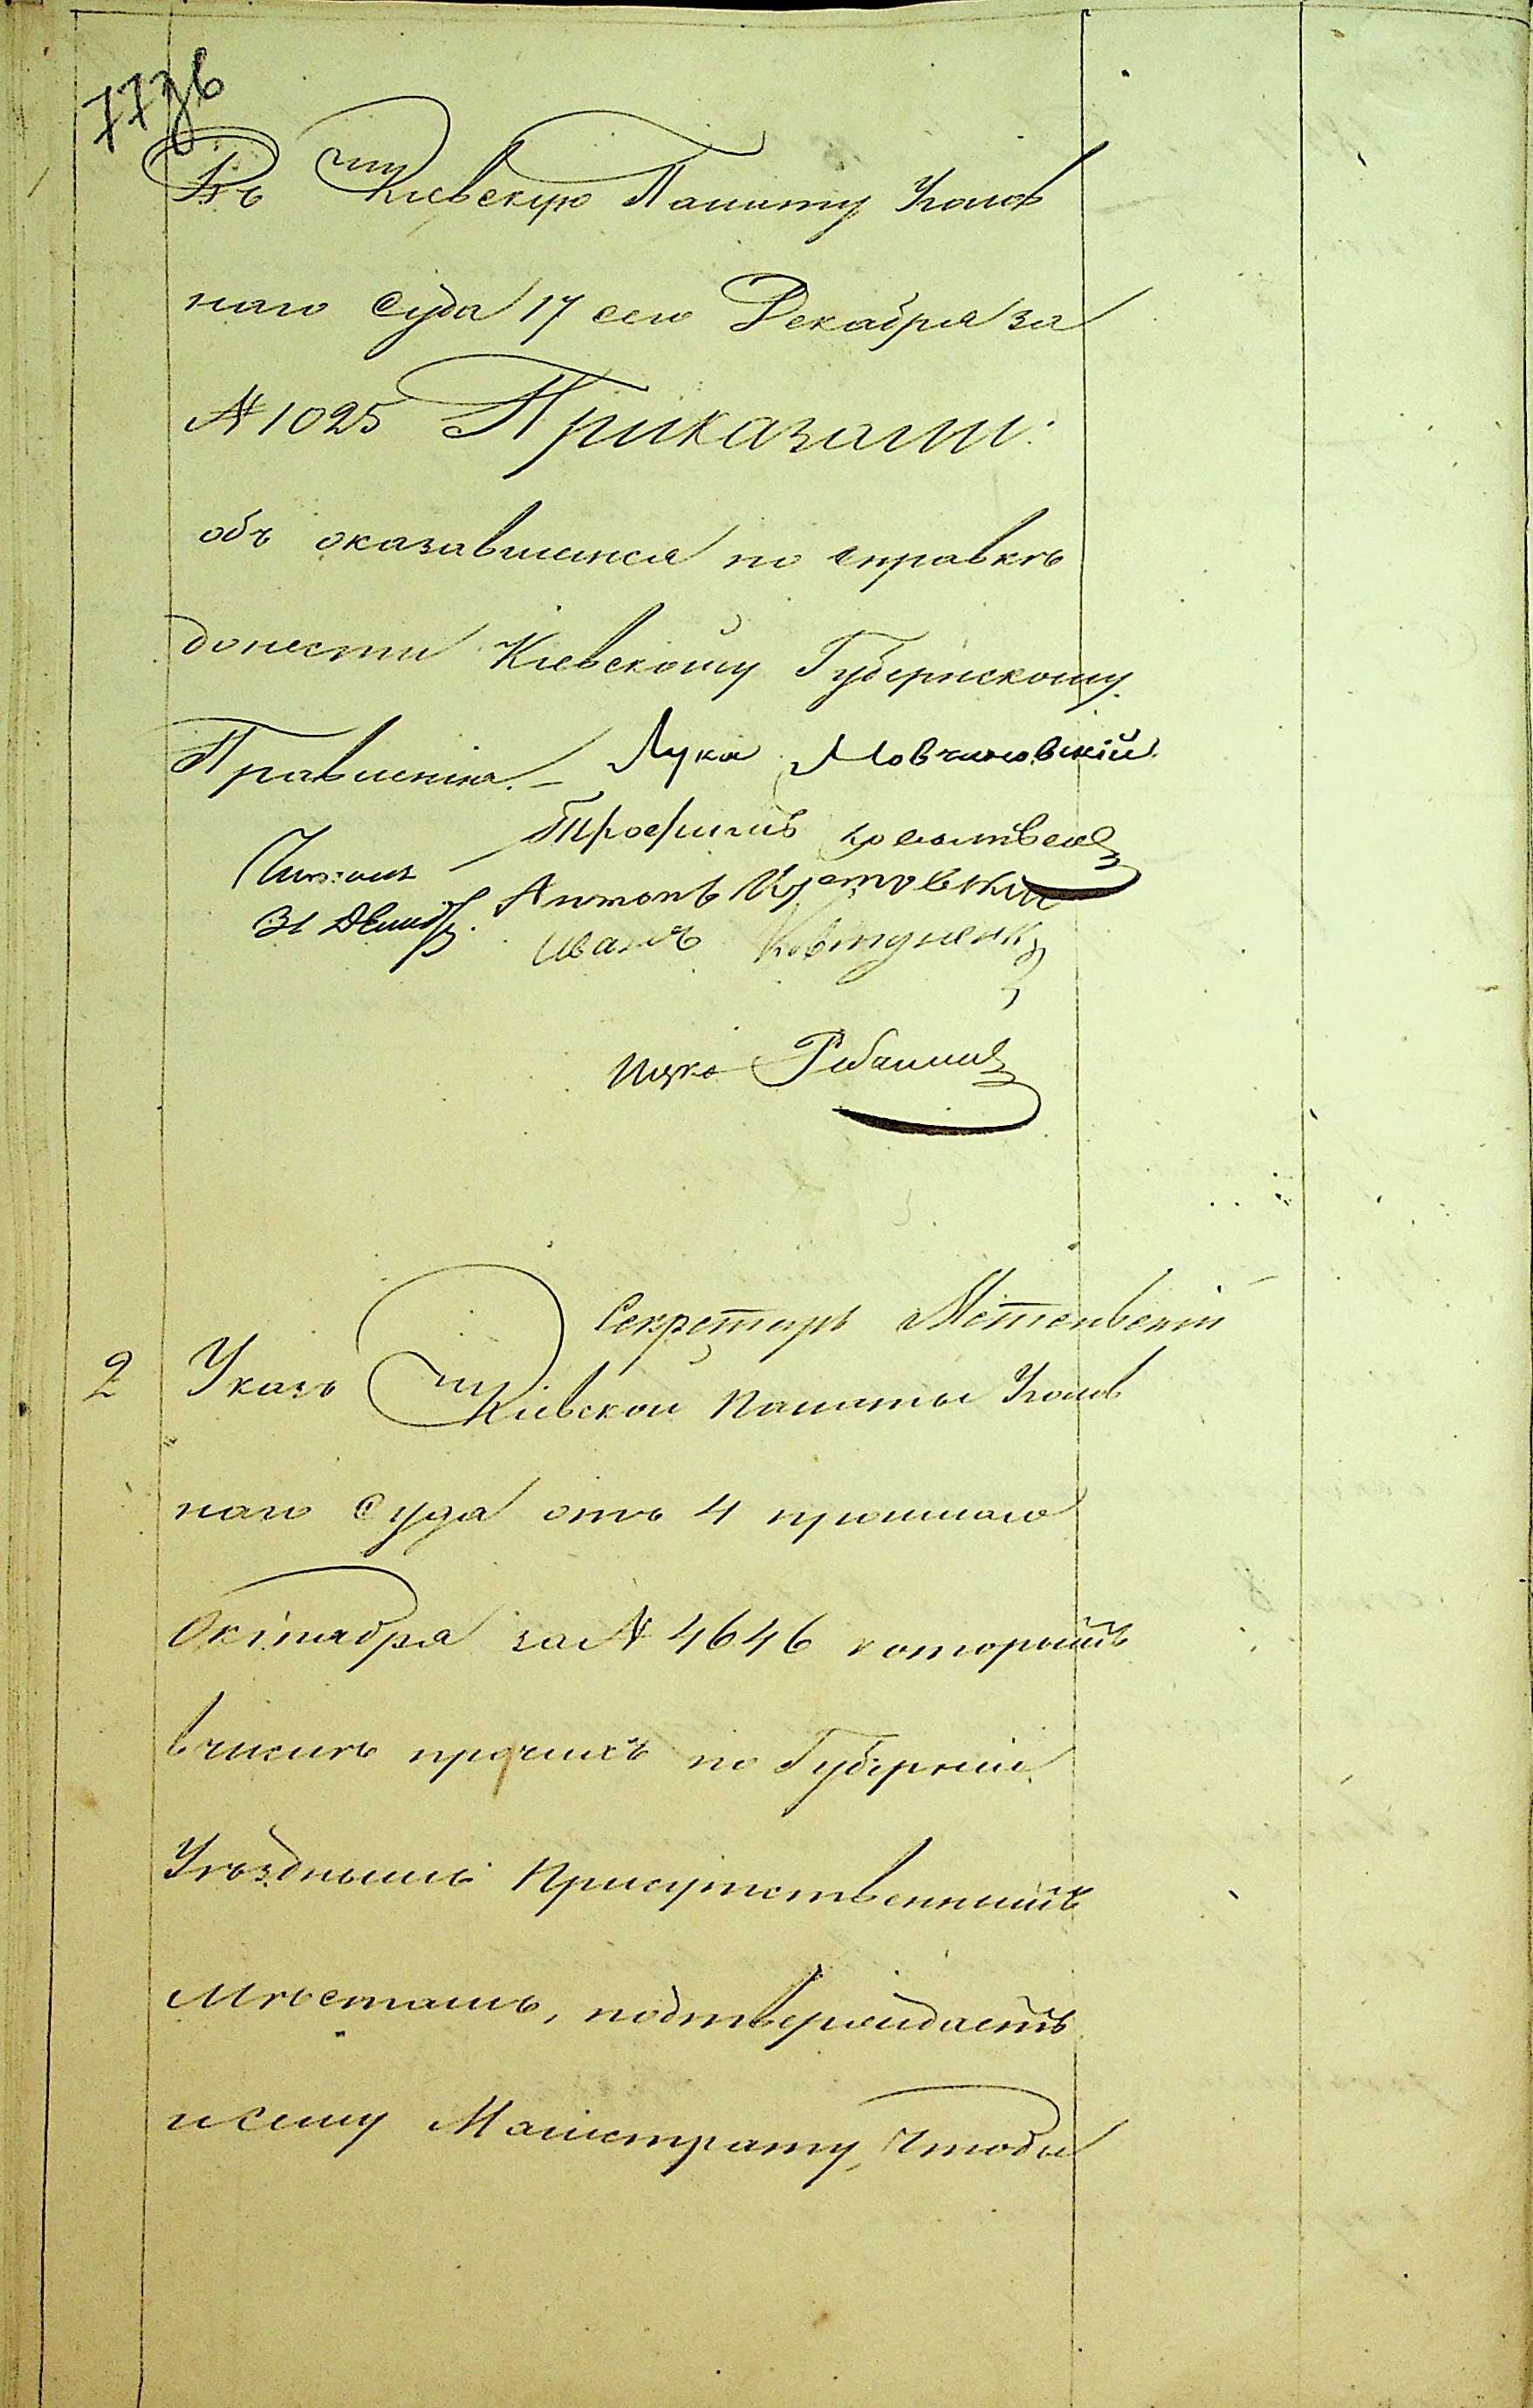 77зв
Въ Кіевскую Палату Уголов
наго Суда 17 сего Декабря за
№ 1025 Приказали:
объ оказавшемся по справкѣ
донести Кіевскому Губернскому
Правленію. Лука
Трофимъ
Антонъ
31 Декаб. Иванъ Ковтуненко
Ицко
Секретарь
2 Указъ Кіевской Палаты Уголов
наго Суда отъ 4 прошлаго
Октября за № 4646 которымъ
вчислѣ прочихъ по Губерніи
Уѣзднымъ Присутственнымъ
Мѣстамъ, подтверждаетъ
исему Магистрату, чтобы